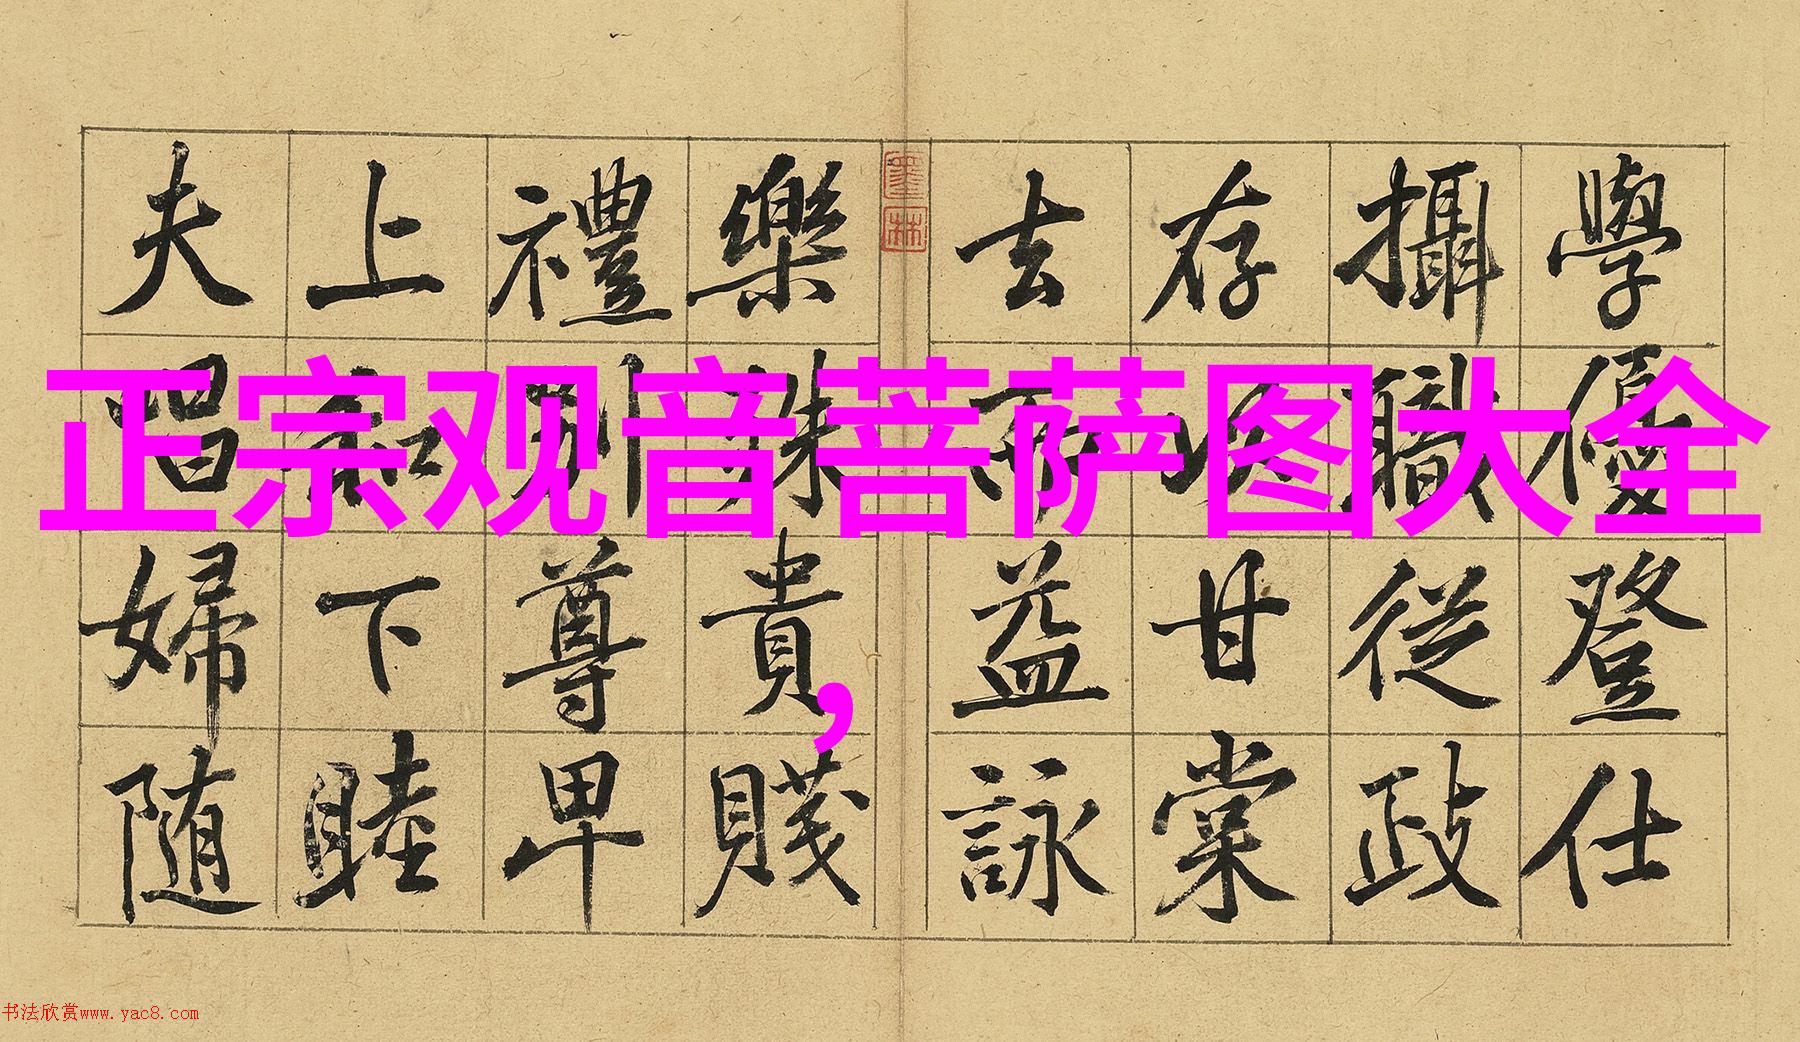 正宗观音菩萨图大全
，
學優登仕
攝職從政
存以甘棠
去而益詠
墨林
樂殊貴賤
禮別尊卑
上和下睦
夫唱婦随
书法欣赏www.yac8.com